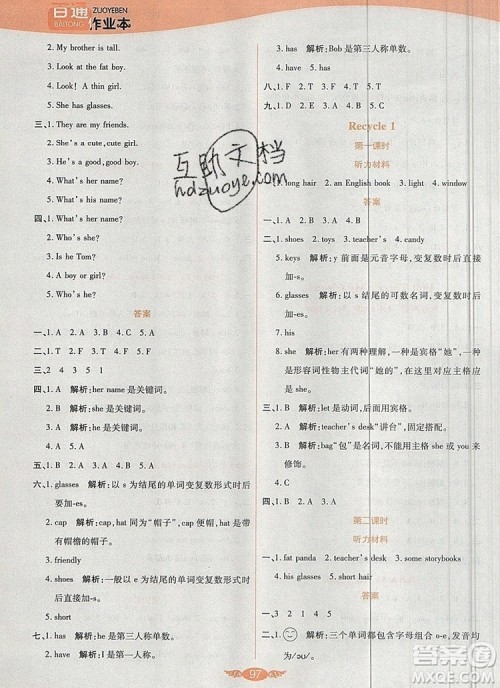 百通
BAITONG
ZUOYEBEN
作业本
2. My brother is tall.
3. Look at the fat boy.
4. Look! A thin girl.
5. She has glasses.
三、1. They are my friends.
2. She's a cute, cute girl.
3. He's a good, good boy.
4. What's her name?
5. What's his name?
四、1. What's her name?
2. Who's she?
3. Is he Tom?
4. A boy or girl?
5. Who's he?
答案
一、1. A 2. A 3. B 4. A 5. A
二、1. F 2. T 3. F 4. F 5. T
三、2 4 3 5 1
四、1. A 解析:her name是关键词。
2. B 解析:she是关键词。
3. B 解析:he是关键词。
五、1. B 2. A 3. B 4. A 5. A
六、1. glasses 解析:以s为结尾的单词变复数形式时后面要加-es。
2. cap 解析:cap, hat同为“帽子”,cap便帽,hat为带有帽檐的帽子。
3. friendly
4. shoes 解析:一般以e为结尾的单词变复数形式时后面要加-s。
5. short
七、1. has 解析:he是第三人称单数。
2. have 解析:I是第一人称。
3. has 解析:Bob是第三人称单数。
4. have 解析:I是第一人称。
八、1. F 2. F 3. T 4. F
九、1. C 2. D 3. B 4. A
Recycle 1
第一课时
听力材料
long hair 2. an English book 3. light 4. window
答案
一、1. A 2. A 3. A 4. B
二、1. shoes 2. toys 3. teacher's 4. candy
5. keys 解析:y前面是元音字母,变复数时后面直接加-s。
6. glasses 解析:以s结尾的可数名词,变复数时后面加-es。
7. his
8. she 解析:her有两种理解,一种是人称宾格“她”,一种是形容词性物主代词“她的”,在这里对应主格应是she。
三、1. B 解析:let是动词,后面用宾格。
2. B 解析:teacher's desk“讲台”,固定搭配。
3. B 解析:bag“包”是名词,不能用主格she或you来修饰。
4. C
第二课时
听力材料
1. fat panda 2. teacher's desk 3. some storybooks
4. his glasses 5. short hair
答案
一、3 2 1 4 5
二、1. 解析:三个单词都包含字母组合o-e,发音均为/əʊ/。
97
互助文档
hdzuoye.com
答案圈
MXQE.COM